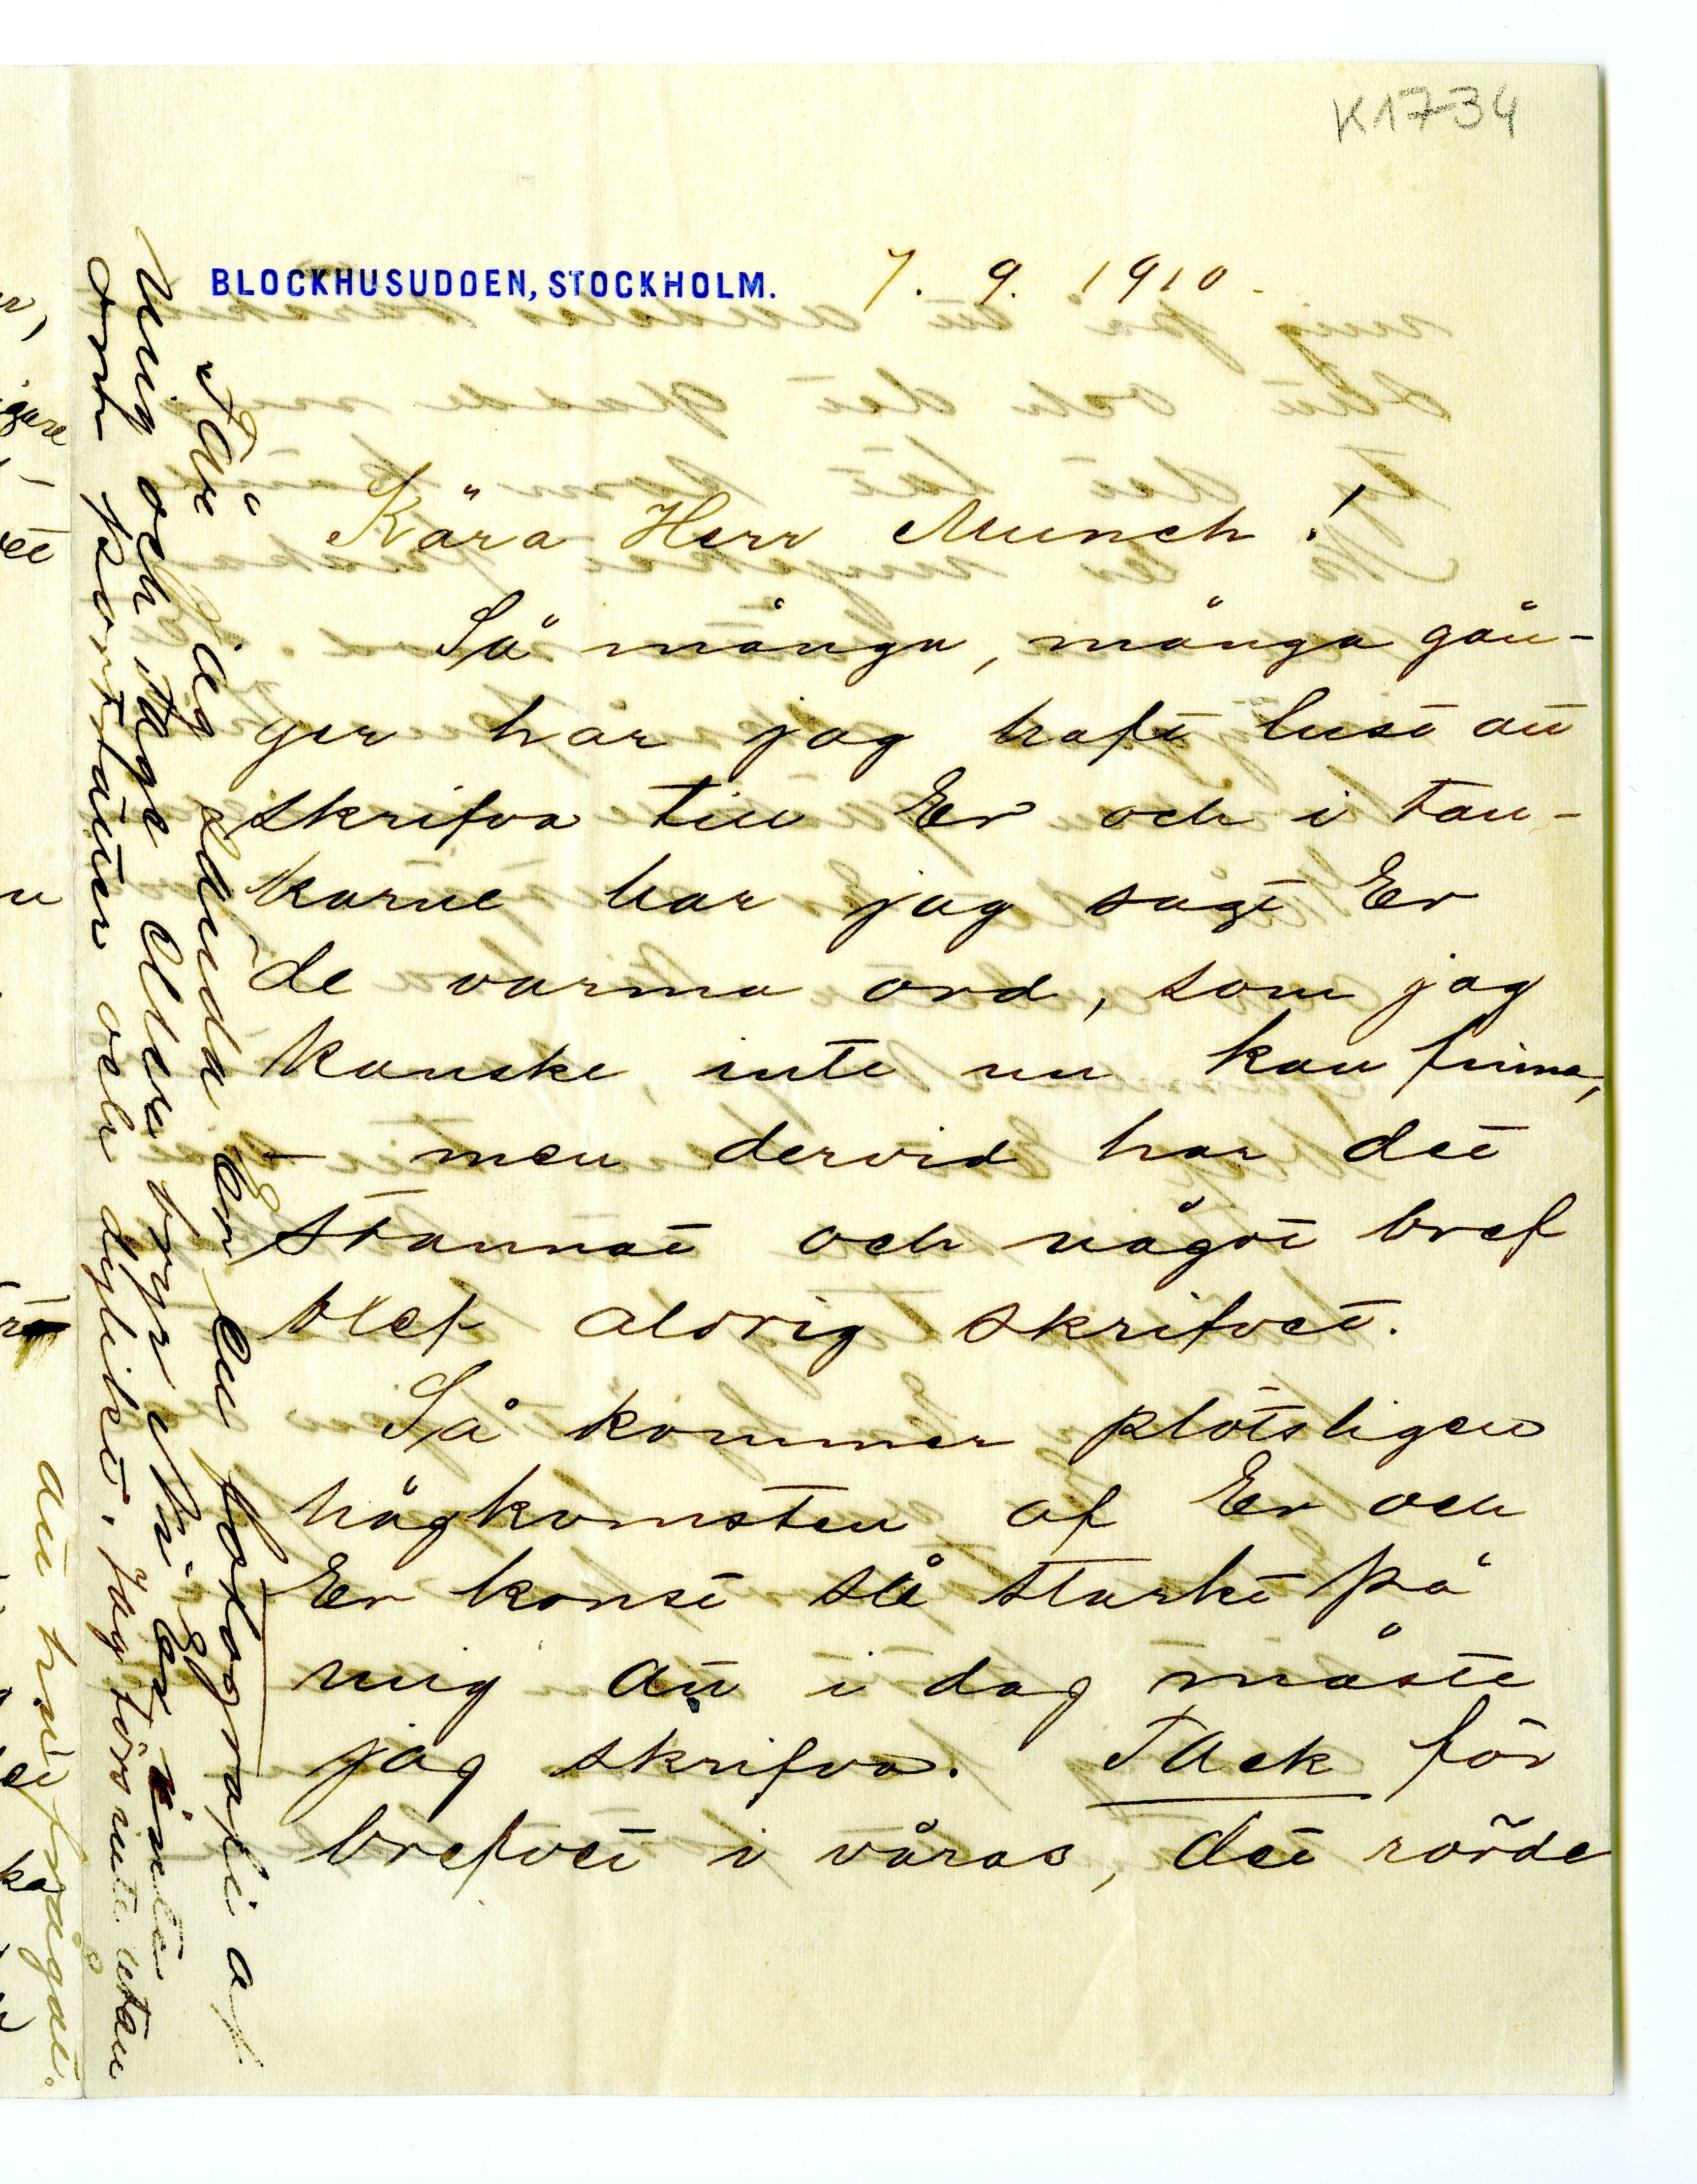 K1734
BLOCKHUSUDDEN, STOCKHOLM.
7. 9. 1910.
Kära Herr Munch!
Så många, många gån-
ger har jag haft lust att
skrifva till Er och i tan-
karne har jag sagt Er
de varma ord, som jag
kanske inte nu kan finna,
– men dervid har det
stannat och något bref
blef aldrig skrifvet.
Så kommer plötsligen
hågkomsten af Er och
Er konst så starkt på
mig att i dag måste
jag skrifva. Tack för
brefvet i våras, det rörde
Får jag sända Er en fotografi af
mig och Tage eller bryr Ni Er inte
om porträtter och dylikt. Jag törs inte utan
att ha frågat.